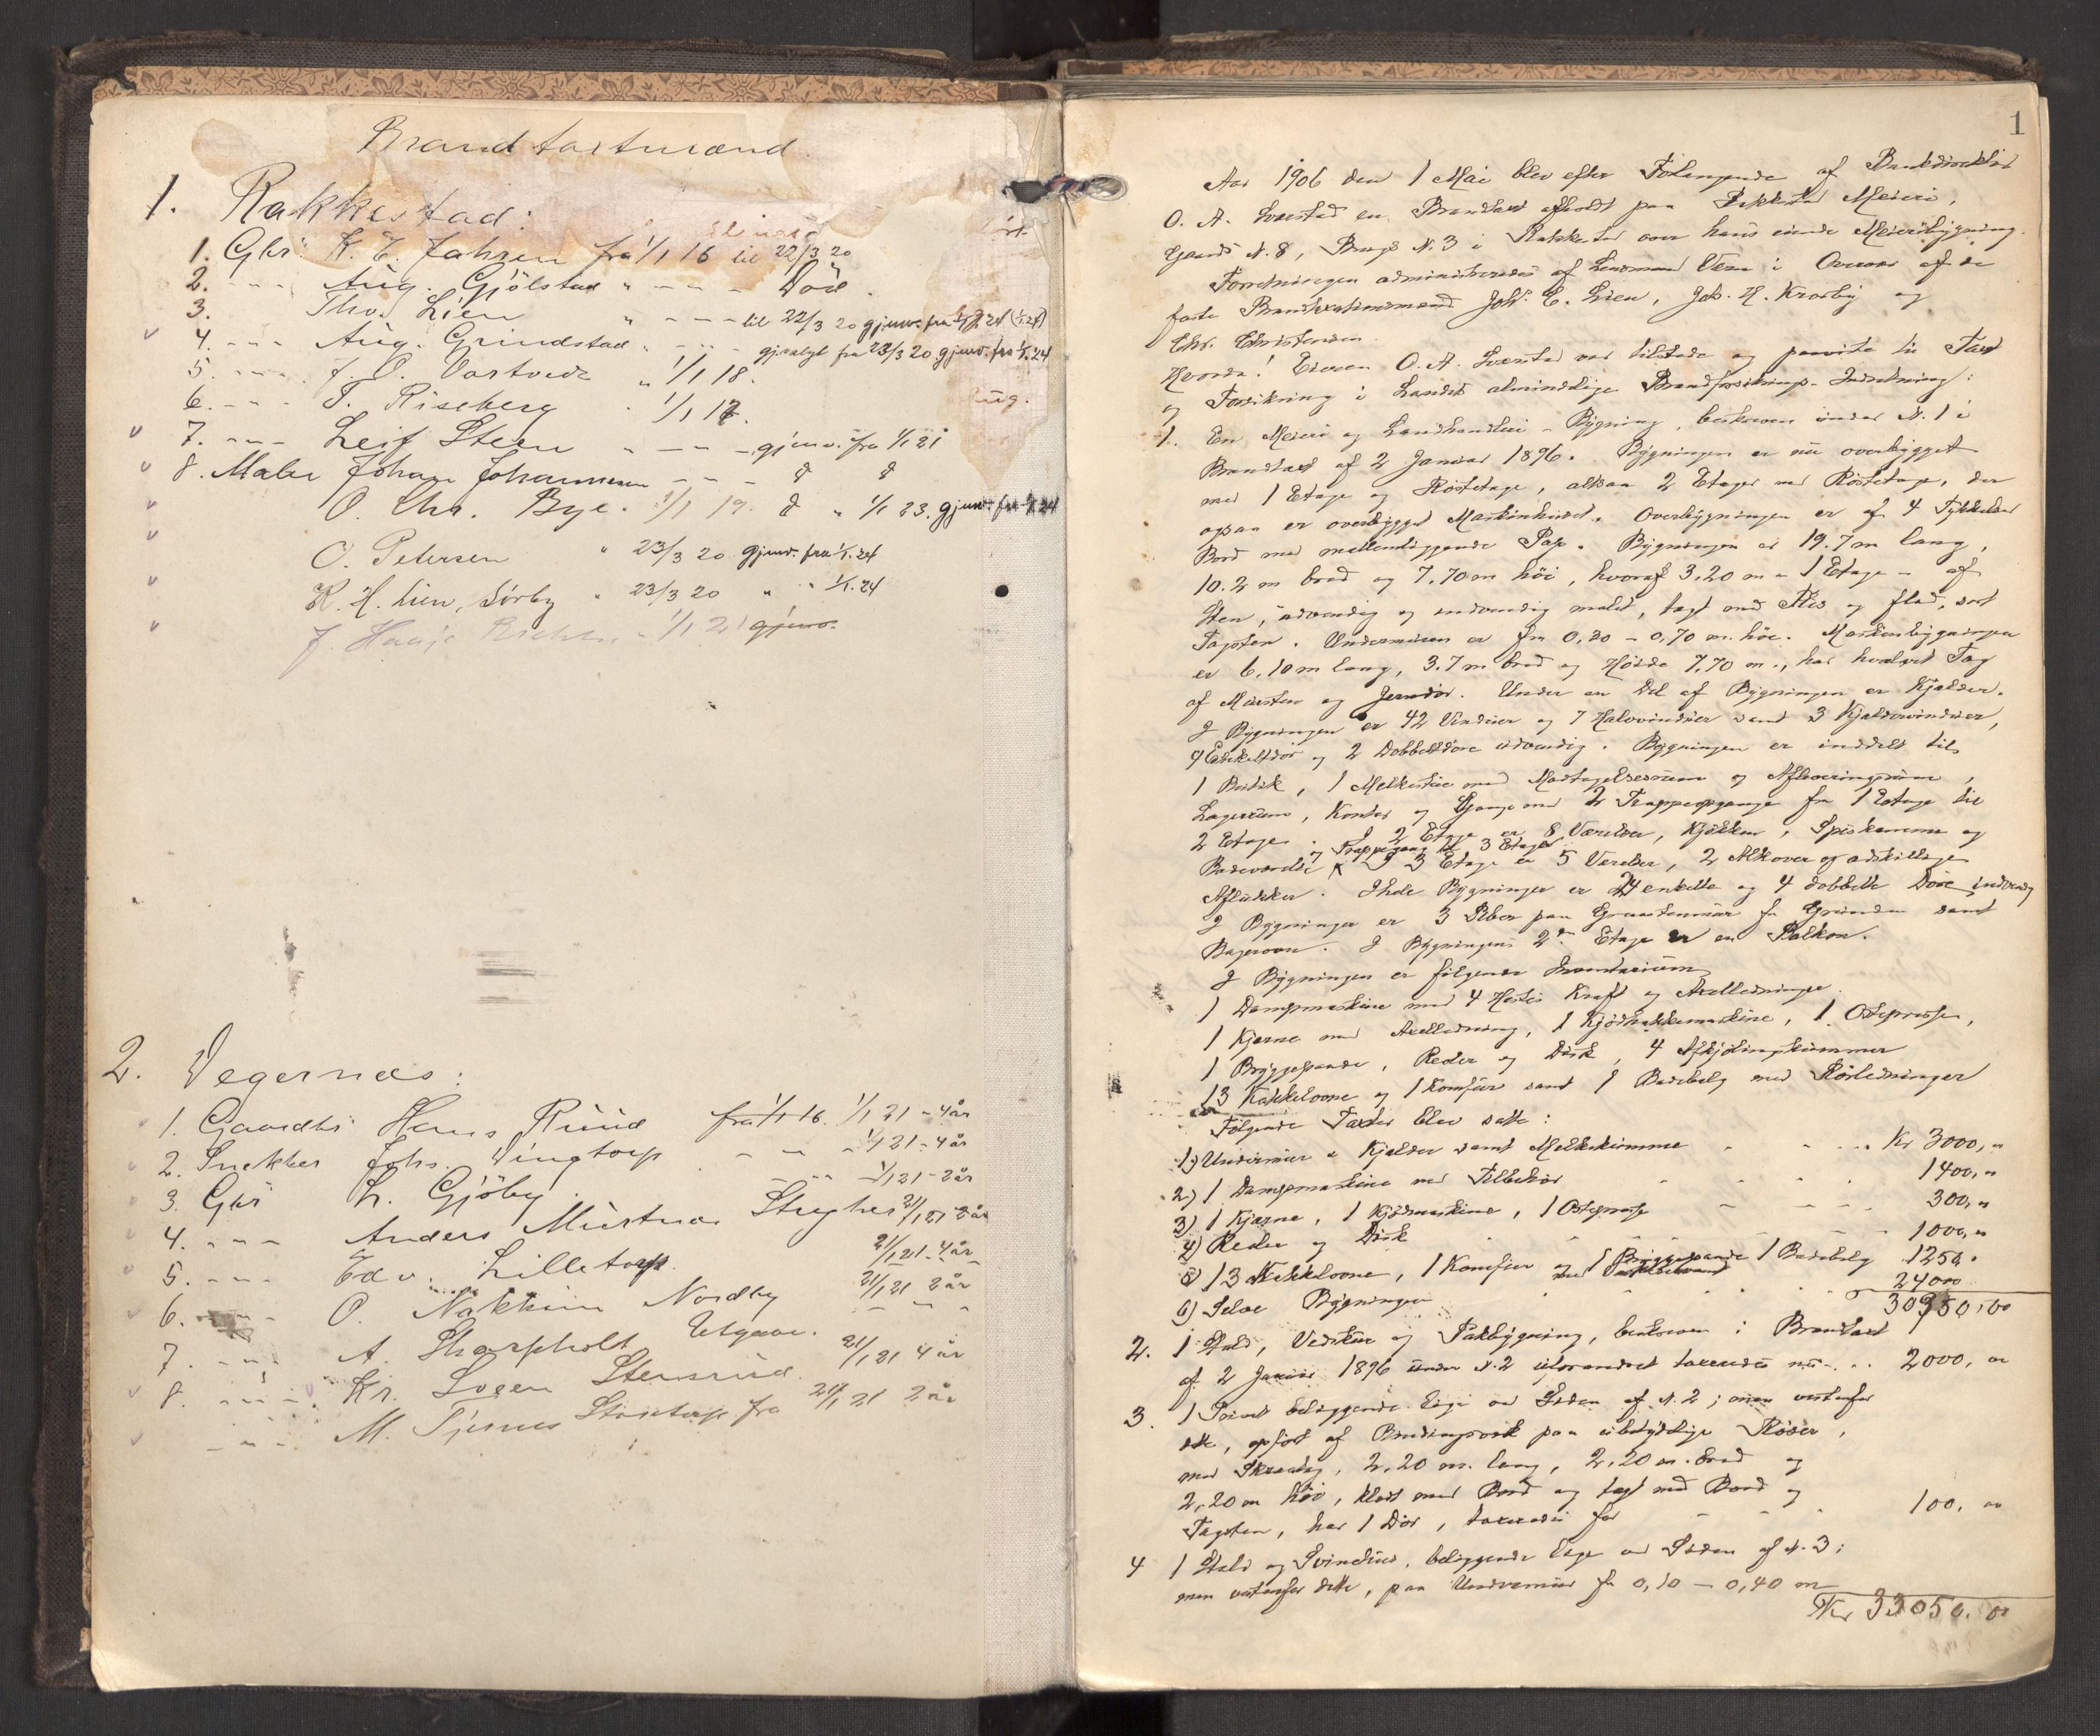 Brandtaxtmænd
1. Rakkestad:
1. Gbr. K. E. Jahren fra 1/1 16 til 22/3 20
2. - - - Aug. Gjölstad " - - - Död.
3. Tho. Lien " - - - til 22/3 20 gjenv. fra 1/1 24
4. - - - Aug. Grindstad " - - - gjenvalgt fra 23/3 20 gjenv. fra 1/1.24
5. - - - J. O. Vortvedt " 1/1 18.
6. - - - T. Riseberg 1/1 17.
7. - - - Leif Steen - - - gjenv. fra 1/1 21
8. Maler Johan Johannesen - - - d d
O. Chr. Bye. 1/1 19. d " 1/1 23. gjenv. fra 1/1.24
O. Petersen " 23/3 20 gjenv. fra 1/1.24
K. H. Lien, Sörby " 23/3 20 " " 1/1.24
J. Haaje 1/1 21 gjenv.
2. Degernes:
1. Gaardbr Hans Ruud fra 1/1 16. 1/1 21 - 4 år
2. Snekker Johs. Vingtorp - - - 1/1 21 - 4 år
3. Gbr L. Gjöby. - - - 1/1 21 - 2 år
4. - - - Anders 21/1 21 2 år
5. - - - Edv. Lilletorp. 21/1 21 - 4 år
6. - - - O. Nakkim Nordby 21/1 21 2 år
7. - - - A. Skarpholt Utgave. - - -
8. - - - Kr. Sveen Stensrud. 21/1 21 4 år
- - - M. Tjernes Stortorp fra 21/1 21 2 år
1
Aar 1906 den 1 Mai blev efter Forlangende af Bankdirektör
O. A. Sverstad en Brandtaxt afholdt paa Meieri,
Gaards N. 8, Brugs N. 3 i Rakkestad over hans eiende Meieribygning.
Forretningen administreredes af Lensmand i Overvær af de
faste Brandtaxtionsmænd Johs. C. Lien, Joh. H. Krosby og
Chr. Christensen.
Hvorda! Eieren O. A. Sverstad var tilstede og paaviste til Taxt
og Forsikring i Landets almindelige Brandforsikrings-Indretning:
1. En Meieri og Landhandleri-Bygning, beskreven under N. 1 i
Brandtaxt af 2 Januar 1896. Bygningen er nu overbygget
med 1 Etage og Röstetage, altsaa 2 Etager med Röstetage, der
ogsaa er overbygget Maskinhuset. Overbygningen er af 4 Tykkelser
Bord med mellemliggende Pap. Bygningen er 19.7 m lang,
10.2 m bred og 7,70 m höi, hvoraf 3,20 m - 1 Etage - af
Sten, udvendig og indvendig malet, tagt med Skis og flad, sort
Tagsten. Undermuren er fra 0,20 - 0,70 m. höi. Maskinbygningen
er 6,10 m lang, 3.7 m bred og Höide 7,70 m., har hvælvet Tag
af Mursten og Jerndör. Under en Del af Bygningen er Kjælder.
I Bygningen er 42 Vinduer og 7 Halvvinduer samt 3 Kjældervinduer,
9 Enkeltdör og 2 Dobbeltdöre udvendig. Bygningen er inddelt til
1 Butik, 1 Melkestue med Modtagelsesrum og Afleveringsrum,
Lagerrum, Kontor og Gange med 2 Trappeopgange fra 1 Etage til
2 Etage. I 2 Etage er 8 Værelser, Kjökken, Spiskammer og
Badeværelse og Trappegang til 3 Etage. I 3 Etage er 5 Værelser, 2 Alkover og adskillige
Aflukker. I hele Bygningen er 24 enkelte og 4 dobbelte Döre indvendig
I Bygningen er 3 Piber paa Graastensmur fra Grunden samt
Bagerovn. I Bygningens 2den Etage er en Balkon.
I Bygningen er fölgende Inventarium
1 Dampmaskine med 4 Hestes Kraft og Axelledninger.
1 Kjerne med Axelledning, 1 Kjödhakkemaskine, 1 Ostepresse,
1 Bryggepande, Reoler og Disk, 4 Afkjölingskummer
13 Kakkelovne og 1 Komfur samt 1 Badebalg med Rörledninger
Fölgende Taxter blev satte:
1) Undermur & Kjælder samt Melkekumme - - . . . Kr 3000,"
2) 1 Dampmaskine med Tilbehör - - - 1400,"
3) 1 Kjerne, 1 Kjödmaskine, 1 Ostepresse - - - 300,"
4) Reoler og Disk - - - 1000,"
5) 13 Kakkelovne, 1 Komfur og 1 Bryggepande 1 Badebalg 1250.
6) Selve Bygningen 24000
30950,00
2. 1 Stald, Vedskur og Pakbygning, beskreven i Brandtaxt
af 2 Januar 1896 under N. 2 uforandret taxeredes nu - . . 2000,00
3. 1 Privet beliggende lige ved Siden af N. 2, men vestenfor
dette, opfört af Bindingsverk paa ubetydelige Röser,
med Skraatag, 2,20 m. lang, 2,20 m. bred og
2,20 m höi, klædt med Bord og tagt med Bord og
Tagsten, har 1 Dör, taxeredes for - - . 100,00
4 1 Stald og Svinehus, beliggende lige ved Siden af N. 3;
men vestenfor dette, paa Undermur fra 0,10 - 0,40 m
Kr 33050.00